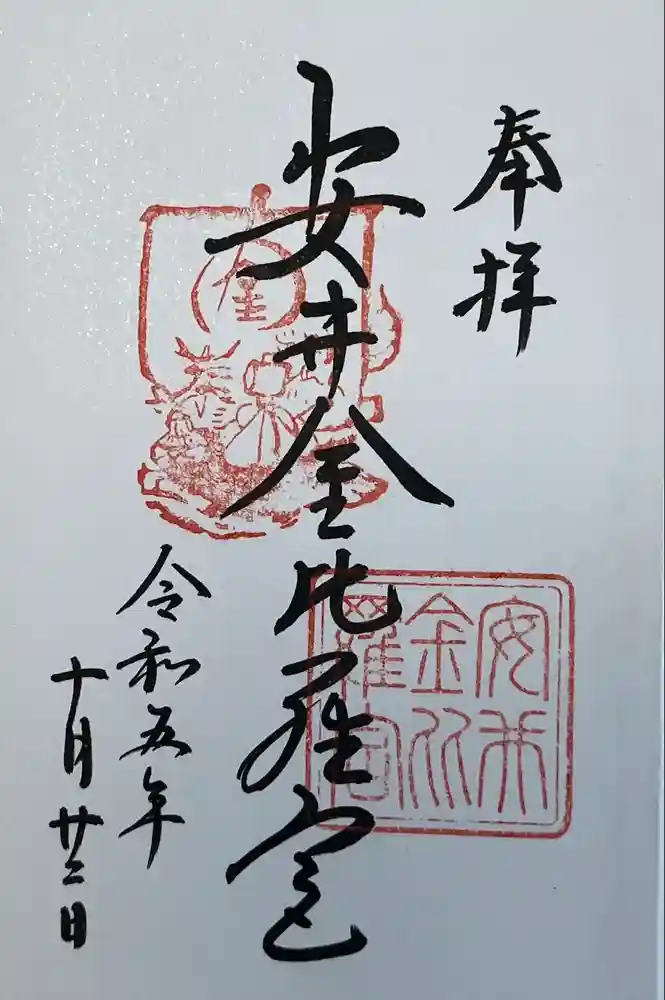 奉拝
安井金比羅宮
令和五年
十月廿二日
金
奉
安井
金比
羅宮